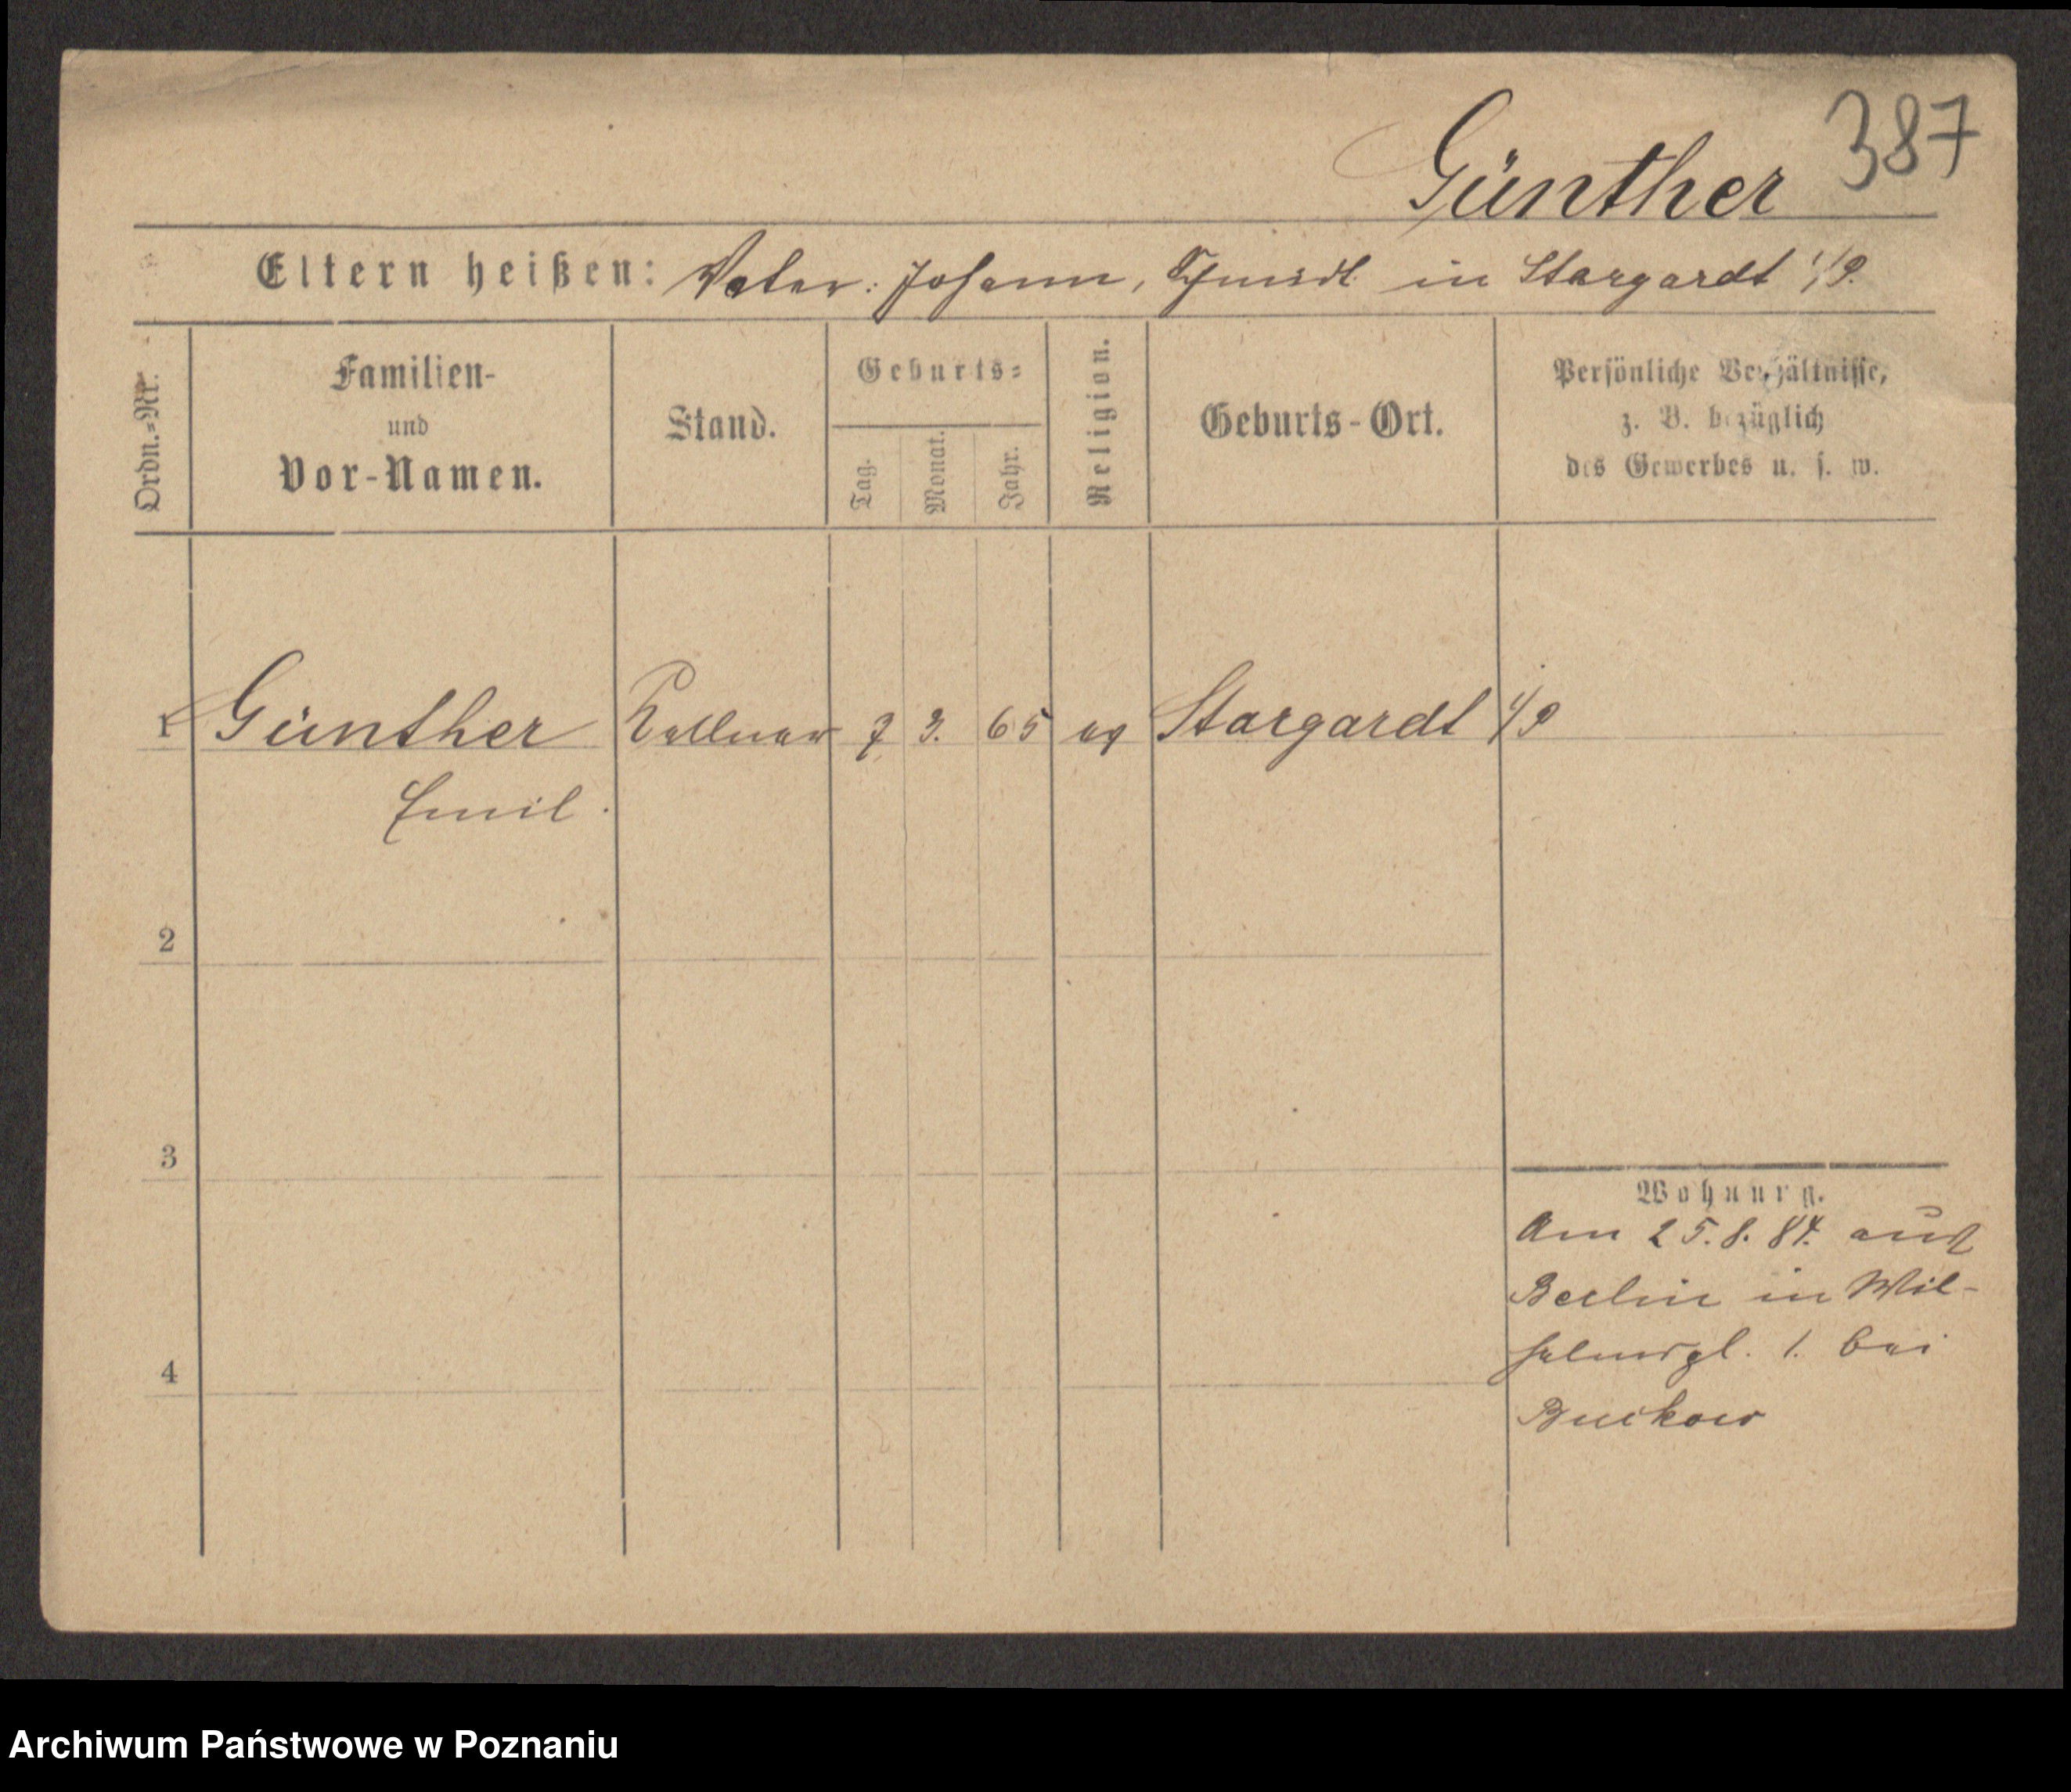 387
Günther
Eltern heißen: Vater: Johann, in Stargardt i/P.
Ordn.-Nr.
Familien-
und
Vor-Namen.
Stand.
Geburts-
Tag.
Monat.
Jahr.
Religion.
Geburts-Ort.
Persönliche Verhältnisse,
z. B. bezüglich
des Gewerbes u. s. w.
1 Günther Kellner 7 3. 65 ev Stargardt i/P
Emil.
2
3
4
Wohnung.
Am 25.8.84. aus
Berlin in Wil-
helmspl. 1. bei
Buckow
Archiwum Państwowe w Poznaniu